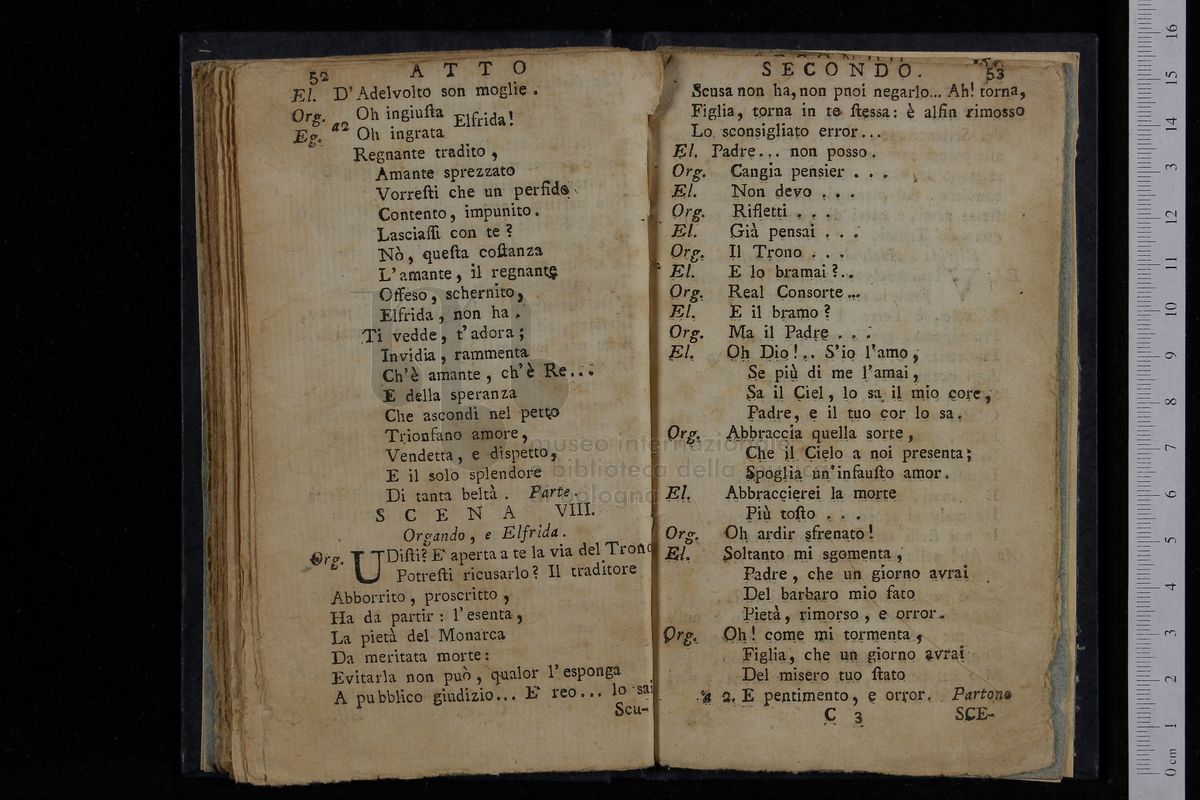 52 ATTO
El. D'Adelvolto son moglie.
Org. Oh ingiuſta
a2 Elfrida!
Eg. Oh ingrata
Regnante tradito,
Amante sprezzato
Vorreſti che un perfido
Contento, impunito.
Lasciaſſi con te?
Nò, queſta coſtanza
L'amante, il regnante
Offeso, schernito,
Elfrida, non ha.
Ti vedde, t'adora;
Invidia, rammenta
Ch'è amante, ch'è Re...
E della speranza
Che ascondi nel petto
Trionfano amore,
Vendetta, e dispetto,
E il solo splendore
Di tanta beltà. Parte.
SCENA VIII.
Orgando, e Elfrida.
Org. UDiſti? E' aperta a te la via del Trono
Potreſti ricusarlo? Il traditore
Abborrito, proscritto,
Ha da partir: l'esenta,
La pietà del Monarca
Da meritata morte:
Evitarla non può, qualor l'esponga
A pubblico giudizio... E' reo... lo sai
Scu-
SECONDO. 53
Scusa non ha, non puoi negarlo... Ah! torna,
Figlia, torna in te ſtessa: è alfin rimosso
Lo sconsigliato error...
El. Padre... non posso.
Org. Cangia pensier...
El. Non devo...
Org. Rifletti...
El. Già pensai...
Org. Il Trono...
El. E lo bramai?...
Org. Real Consorte...
El. E il bramo?
Org. Ma il Padre...
El. Oh Dio!.. S'io l'amo,
Se più di me l'amai,
Sa il Ciel, lo sa il mio core,
Padre, e il tuo cor lo sa.
Org. Abbraccia quella sorte,
Che il Cielo a noi presenta;
Spoglia un'infauſto amor.
El. Abbraccierei la morte
Più toſto...
Org. Oh ardir sfrenato!
El. Soltanto mi sgomenta,
Padre, che un giorno avrai
Del barbaro mio fato
Pietà, rimorso, e orror.
Org. Oh! come mi tormenta,
Figlia, che un giorno avrai
Del misero tuo ſtato
a 2. E pentimento, e orror. Partono
C 3 SCE-
museo internazionale
biblioteca della musica
di bologna
0 cm 1 2 3 4 5 6 7 8 9 10 11 12 13 14 15 16